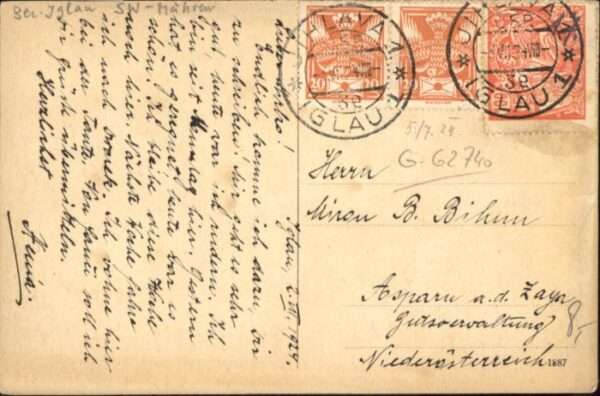 Bez. Iglau SW-Mähren
Iglau, 2. VII. 1924.
Endlich komme ich dazu, Dir
zu schreiben! Mir geht es sehr
gut, heute war ich rudern. Ich
bin seit Montag hier. Gestern
hat es geregnet, heute war es
schön. Ich bleibe eine Woche
noch hier. Nächste Woche fahre
ich nach
Ich wohne hier
bei der Tante. Von
soll ich
Dir Grüße übermitteln.
Herzlichst
JIHLAVA 1
3e
IGLAU 1
JIHLAVA 1
3e
IGLAU 1
5/7. 24
G-62740
Herrn
Miron B. Bihun
Asparn a. d. Zaya
Gutsverwaltung
Niederösterreich
8,-
1887